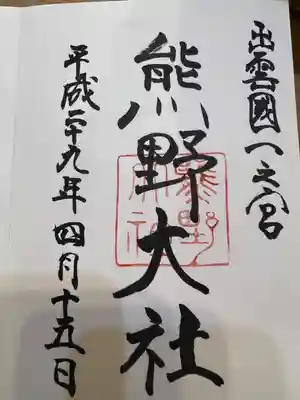 出雲國一之宮
熊野大社
平成二十九年四月十五日
熊野大社